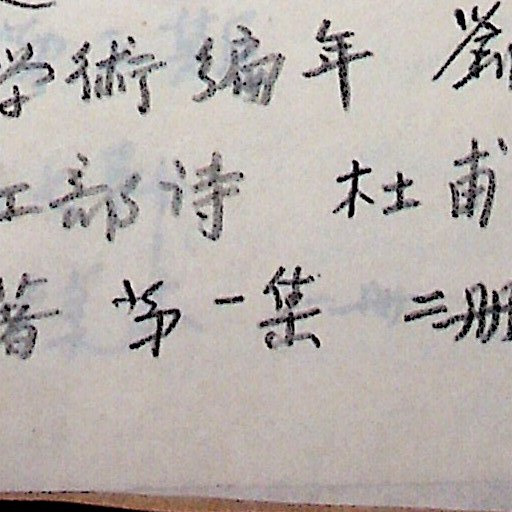 学術编年 劉
工部诗 杜甫
著 第一集 二册